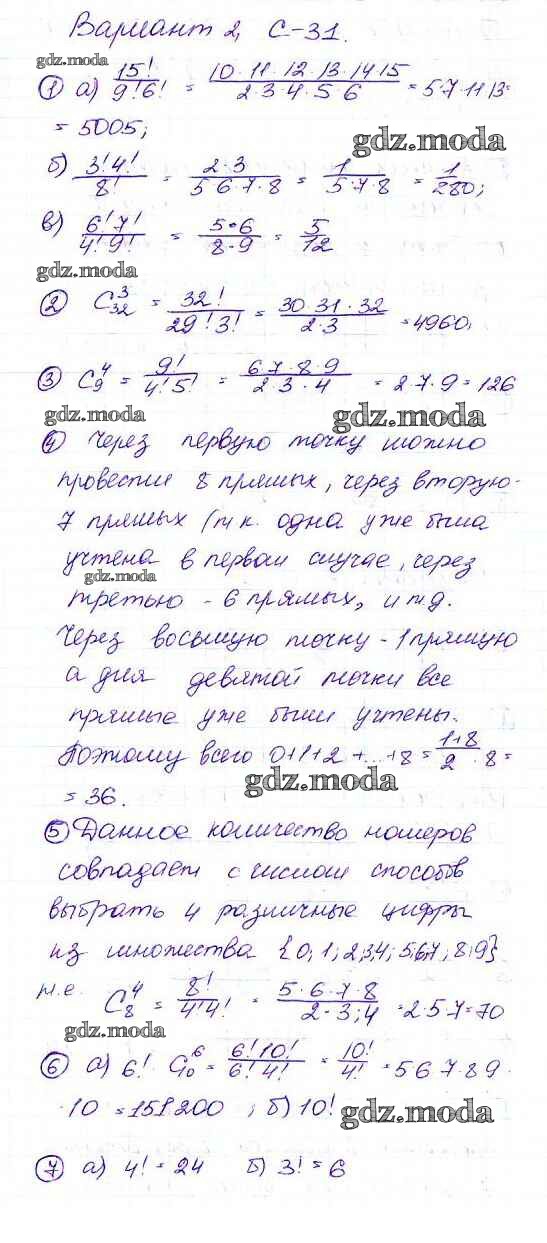 Вариант 2, С-31.
gdz.moda
① а) 15!/9!6! = 10·11·12·13·14·15/2·3·4·5·6 = 5·7·11·13=
= 5005;
gdz.moda
б) 3!4!/8! = 2·3/5·6·7·8 = 1/5·7·8 = 1/280;
в) 6!7!/4!9! = 5·6/8·9 = 5/12
gdz.moda
② C₃₂³ = 32!/29!3! = 30·31·32/2·3 = 4960;
③ C₉⁴ = 9!/4!5! = 6·7·8·9/2·3·4 = 2·7·9 = 126
gdz.moda gdz.moda
④ Через первую точку можно
провести 8 прямых, через вторую-
7 прямых (т.к. одна уже была
учтена в первом случае, через
gdz.moda
третью - 6 прямых, и т.д.
Через восьмую точку - 1 прямую
а для девятой точки все
прямые уже были учтены.
Поэтому всего 0+1+2+...+8 = 1+8/2 · 8 =
gdz.moda
= 36.
⑤ Данное количество номеров
совпадает с числом способов
выбрать 4 различные цифры
из множества {0,1;2;3,4;5;6;7,8;9}
т.е. C₈⁴ = 8!/4!4! = 5·6·7·8/2·3;4 = 2·5·7=70
gdz.moda
⑥ а) 6! · C₁₀⁶ = 6!10!/6!4! = 10!/4! = 5·6·7·8·9·
·10 = 151200; б) 10!
gdz.moda
⑦ а) 4! = 24 б) 3! = 6